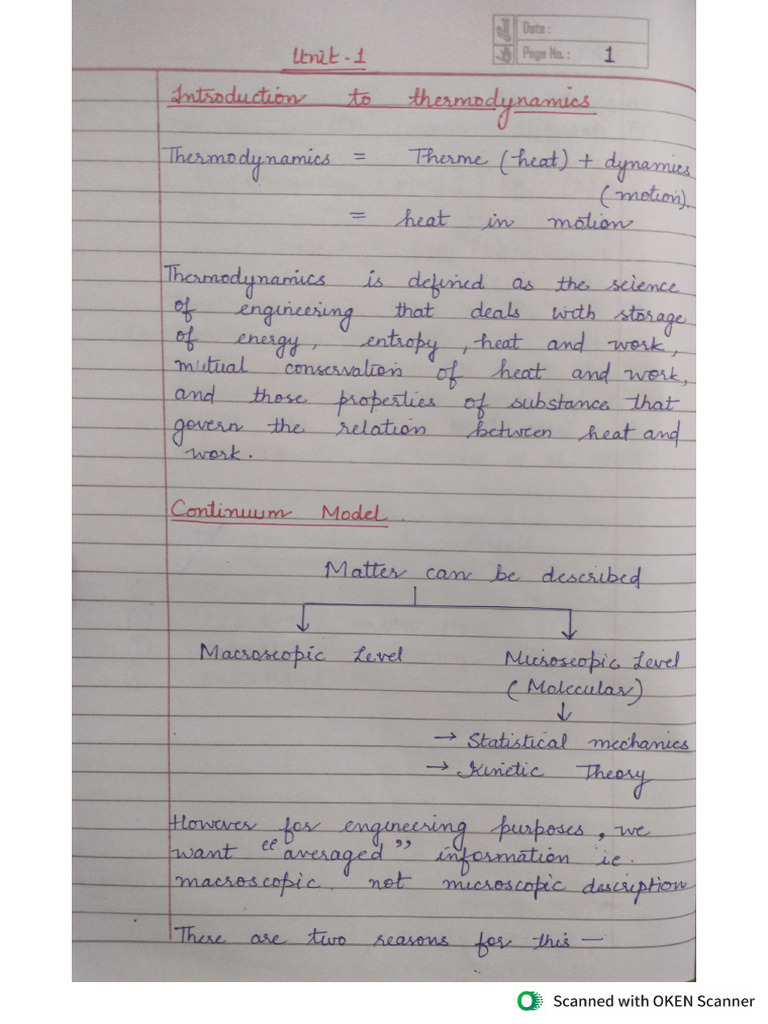 Date :
Page No. : 1
Unit - 1
Introduction to thermodynamics
Thermodynamics = Therme (heat) + dynamics
(motion).
= heat in motion
Thermodynamics is defined as the science
of engineering that deals with storage
of energy, entropy, heat and work,
mutual conservation of heat and work,
and those properties of substance that
govern the relation between heat and
work.
Continuum Model
Matter can be described
Macroscopic Level Microscopic Level
(Molecular)
→ Statistical mechanics
→ Kinetic Theory
However for engineering purposes, we
want "averaged" information ie.
macroscopic not microscopic description
There are two reasons for this —
Scanned with OKEN Scanner